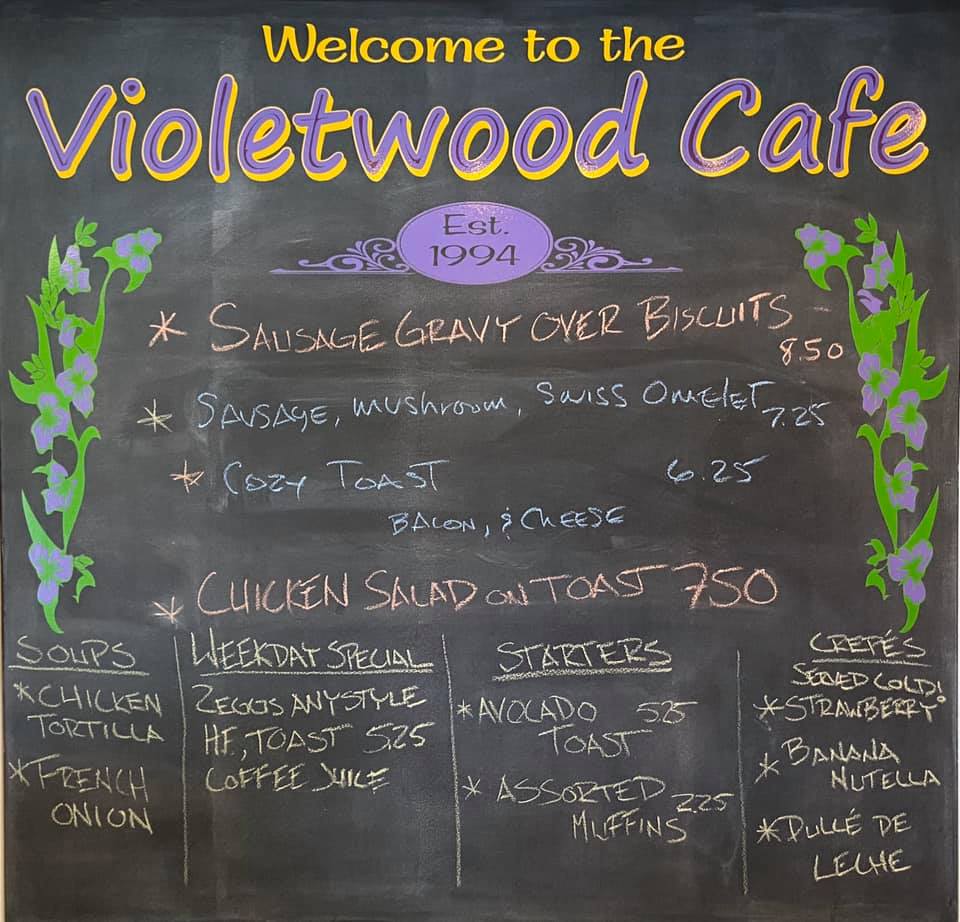 Welcome to the
Violetwood Cafe
Est.
1994
* SAUSAGE GRAVY OVER BISCUITS -
8.50
* SAUSAGE, MUSHROOM, SWISS OMELET 7.25
* COZY TOAST 6.25
BACON, & CHEESE
* CHICKEN SALAD ON TOAST 750
SOUPS
* CHICKEN
TORTILLA
* FRENCH
ONION
WEEKDAY SPECIAL
2EGGS ANYSTYLE
HF, TOAST 5.25
COFFEE JUICE
STARTERS
* AVOCADO 525
TOAST
* ASSORTED 2.25
MUFFINS
CREPÉS
SERVED COLD!
* STRAWBERRY
* BANANA
NUTELLA
* DULLÉ DE
LECHE